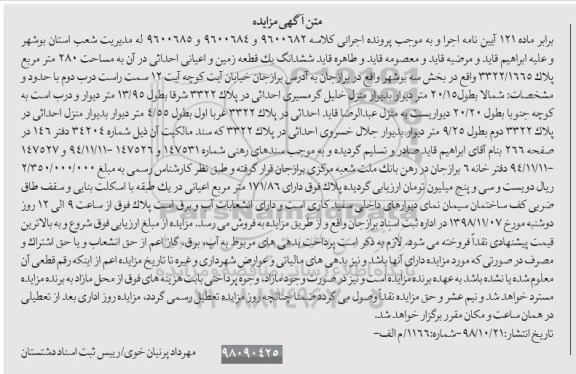 متن آگهی مزایده
برابر ماده ۱۲۱ آیین نامه اجرا و به موجب پرونده اجرائی کلاسه ۹۶۰۰۶۸۲ و ۹۶۰۰۶۸۴ و ۹۶۰۰۶۸۵ له مدیریت شعب استان بوشهر
و علیه ابراهیم قاید و مرضیه قاید و معصومه قاید و طاهره قاید ششدانگ یك قطعه زمین و اعیانی احداثی در آن به مساحت ۲۸۰ متر مربع
پلاك ۳۳۲۲/۱۶۶۵ واقع در بخش سه بوشهر واقع در برازجان به آدرس برازجان خیابان آیت کوچه آیت ۱۲ سمت راست درب دوم با حدود و
مشخصات: شمالا بطول ۲۰/۱۵ متر دیوار بدیوار منزل خلیل گرمسیری احداثی در پلاك ۳۳۲۲ شرقا بطول ۱۳/۹۵ متر دیوار و درب است به
کوچه جنوبا بطول ۲۰/۲۰ دیواریست به منزل عبدالرضا قاید احداثی در پلاك ۳۳۲۲ غربا اول بطول ۴/۵۵ متر دیوار بدیوار منزل احداثی در
پلاك ۳۳۲۲ دوم بطول ۹/۲۵ متر دیوار بدیوار جلال خسروی احداثی در پلاك ۳۳۲۲ که سند مالکیت آن ذیل شماره ۳۴۲۰۴ دفتر ۱۴۶ در
صفحه ۲۶۶ بنام آقای ابراهیم قاید صادر و تسلیم گردیده و به موجب سندهای رهنی شماره ۱۴۷۵۳۱ و ۱۴۷۵۲۶ -۹۴/۱۱/۱۱ و ۱۴۷۵۲۷
-۹۴/۱۱/۱۱ دفتر خانه ۶ برازجان در رهن بانك ملت شعبه مرکزی برازجان قرار گرفته و طبق نظر کارشناس رسمی به مبلغ ۲/۳۵۰/۰۰۰/۰۰۰
ریال دویست و سی و پنج میلیون تومان ارزیابی گردیده پلاك فوق دارای ۱۷۱/۸۶ متر مربع اعیانی در یك طبقه با اسکلت بنایی و سقف طاق
ضربی کف ساختمان سیمان نمای دیوارهای داخلی سفید کاری است و دارای انشعابات آب و برق است پلاك فوق از ساعت ۹ الی ۱۲ روز
دوشنبه مورخ ۱۳۹۸/۱۱/۰۷ در اداره ثبت اسناد برازجان واقع و از طریق مزایده به فروش می رسد. مزایده از مبلغ ارزیابی فوق شروع و به بالاترین
قیمت پیشنهادی نقداً فروخته می شود، لازم به ذکر است پرداخت بدهی های مربوط به آب، برق، گاز اعم از حق انشعاب و یا حق اشتراك و
مصرف در صورتی که مورد مزایده دارای آنها باشد و نیز بدهی های مالیاتی و عوارض شهرداری و غیره تا تاریخ مزایده اعم از اینکه رقم قطعی آن
معلوم شده یا نشده باشد به عهده برنده مزایده است و نیز در صورت وجود مازاد، وجوه پرداختی بابت هزینه های فوق از محل مازاد به برنده مزایده
مسترد خواهد شد و نیم عشر و حق مزایده نقداً وصول می گردد ضمنا چنانچه روز مزایده تعطیل رسمی گردد، مزایده روز اداری بعد از تعطیلی
در همان ساعت و مکان مقرر برگزار خواهد شد.
تاریخ انتشار: ۹۸/۱۰/۲۱ -شماره: ۱۱۶۶/م الف-
مهرداد پرنیان خوی/رییس ثبت اسناد دشتستان
۹۸۰۹۰۴۲۵
ParsNamadData
۰۲۱-۸۸۳۴۹۶۷۰